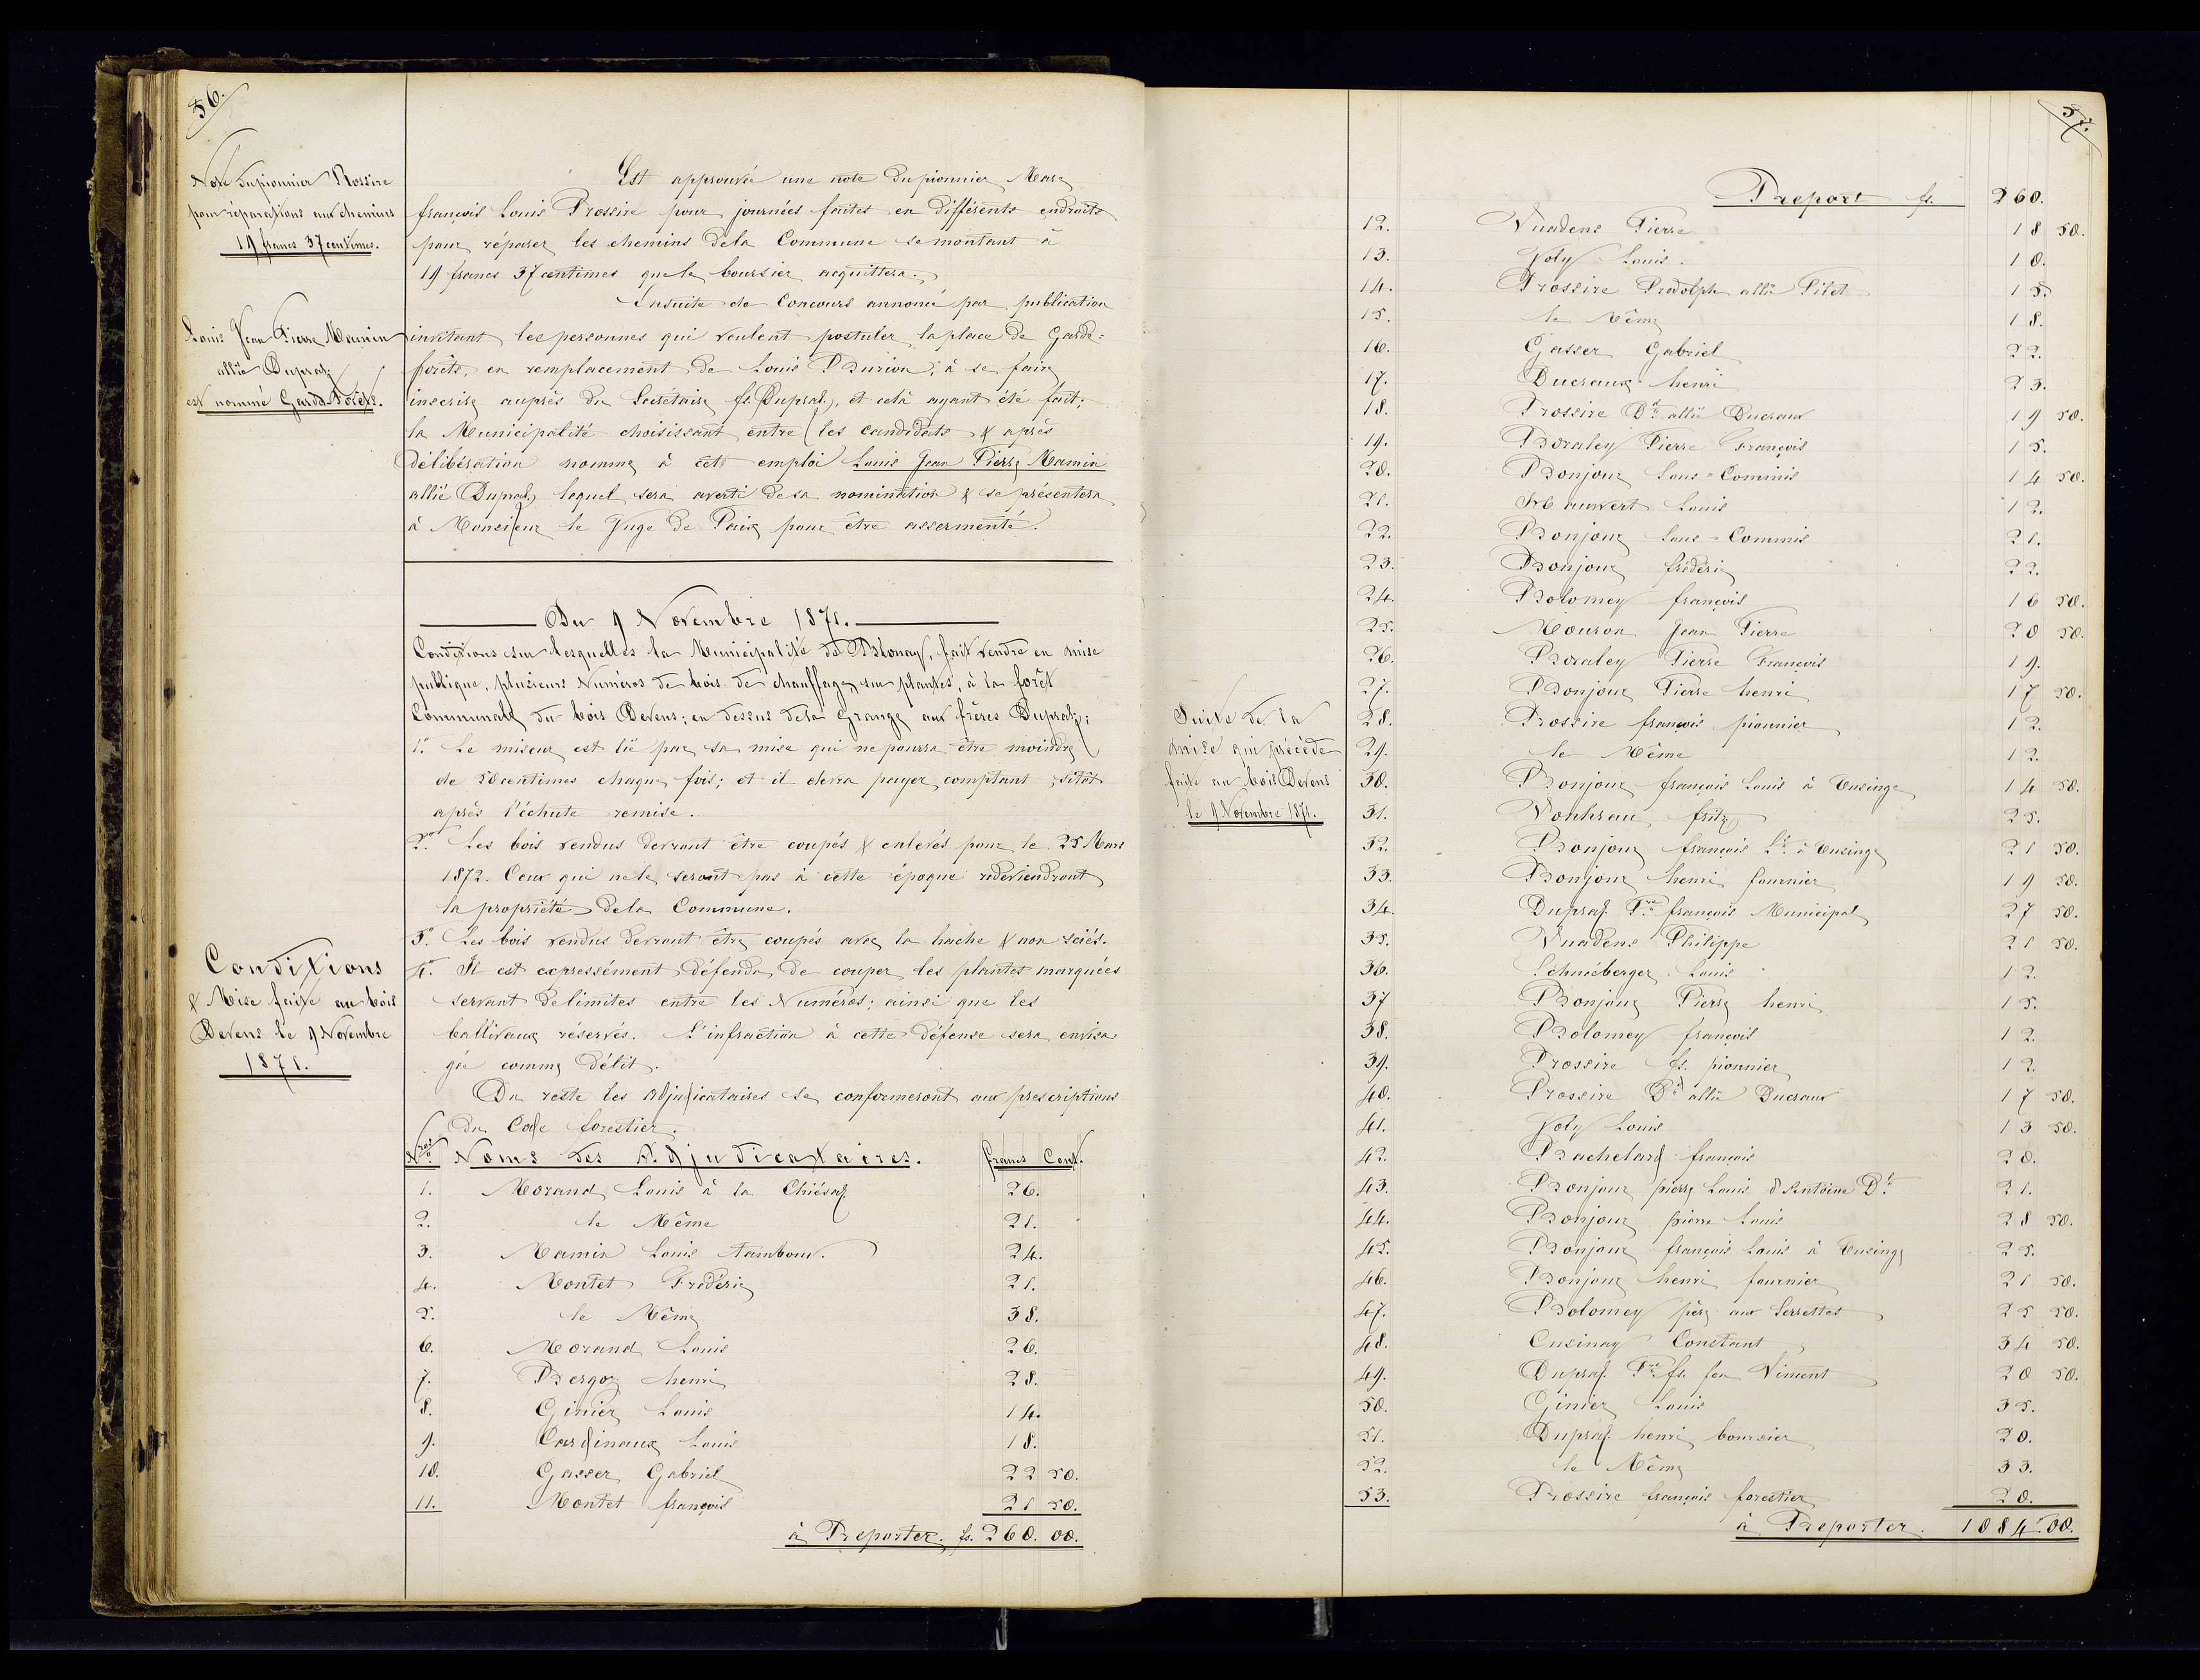 56.
Note du pionnier Rossire
pour réparations aux chemins
19 francs 37 centimes.
Est approuvée une note du pionnier Marc
françois Louis Rossire pour journées faites en différents endroits
pour réparer les chemins dela Commune se montant à
19 francs 37 centimes que le boursier acquittera.
Louis Jean Pierre Mamin
allié Dupraz
est nommé Garde-Forêts.
Ensuite de Concours annoncé par publication
invitant les personnes qui veulent postuler la place de Garde=
forêts, en remplacement de Louis Burion, à se faire
inscrire auprès du Secrétaire fs. Dupraz, et celà ayant été fait;
la Municipalité choisissant entre les candidats & après
délibération nomme à cet emploi Louis Jean Pierre Mamin
allié Dupraz, lequel sera averti de sa nomination & se présentera
à Monsieur le Juge de Paix pour être assermenté.
Du 9 Novembre 1871.
Conditions sur lesquelles la Municipalité de Blonay, fait vendre en mise
publique, plusieurs Numéros de bois de chauffage, sur plantes, à la forêt
Communale du bois Devens; en dessus dela Grange aux frères Dupraz;
1o. Le miseur est lié par sa mise qui ne pourra être moindre
de 50 centimes chaque fois; et il devra payer comptant sitôt
après l'échute remise.
2o. Les bois vendus devront être coupés & enlevés pour le 25 Mars
1872. Ceux qui ne le seront pas à cette époque redeviendront
la propriété dela Commune.
3o. Les bois vendus devront être coupés avec la hache & non sciés.
Conditions
& Mise faite au bois
Devens le 9 Novembre
1871.
4o. Il est expressément défendu de couper les plantes marquées
servant de limites entre les Numéros; ainsi que les
balliveaux réservés. L'infraction à cette défense sera envisa
gée comme délit.
Du reste les adjudicataires se conformeront aux prescriptions
du Code forestier.
Nros Noms des Adjudicataires. francs Cent.
1. Morand Louis à la Chiésaz 26.
2. le Même 21.
3. Mamin Louis tambour. 24.
4. Montet Frédéric 21.
5. le Même 38.
6. Morand Louis 26.
7. Bergoz henri 28.
8. Ginier Louis 14.
9. Cardinaux Louis 18.
10. Gasser Gabriel 22 50.
11. Montet françois 21 50.
à Reporter. fs. 260. 00.
57.
Report fs. 260.
12. Vuadens Pierre 18 50.
13. Voly Louis. 10.
14. Rossire Rodolph allié Pilet 15.
15. le Même 18.
16. Gasser Gabriel 22.
17. Ducraux henri 23.
18. Rossire Dd allié Ducraux 19 50.
19. Boraley Pierre François 15.
20. Bonjour Sous=Commis 14 50.
21. Louis 12.
22. Bonjour Sous=Commis 21.
23. Bonjour frédéric 22.
24. Bolomey françois 16 50.
25. Mouron Jean Pierre 20 50.
26. Boraley Pierre François 19.
27. Bonjour Pierre henri 17 50.
Suite de la
mise qui précède
faite au bois Devens
le 9 Novembre 1871.
28. Rossire françois pionnier 12.
29. le Même 12.
30. Bonjour françois Louis à Tusinge 14 50.
31. fritz 25.
32. Bonjour françois Ls. à Tusinge 21 50.
33. Bonjour henri fournier 19 50.
34. Dupraz Pre françois Municipal 27 50.
35. Vuadens Philippe 21 50.
36. Schnéeberger Louis 12.
37 Bonjour Pierre henri 15.
38. Bolomey françois 12.
39. Rossire fs. pionnier 12.
40. Rossire Dd allié Ducraux 17 50.
41. Voly Louis 13 50.
42. Bachelard françois 20.
43. Bonjour pierre Louis d'Antoine Dd. 21.
44. Bonjour pierre Louis 28 50.
45. Bonjour françois Louis à Tusinge 25.
46. Bonjour henri fournier 21 50.
47. Bolomey père aux Serrettes 25 50.
48. Cusinay Constant 34 50.
49. Dupraz Pre fs. feu Viment 20 50.
50. Ginier Louis 35.
51. Dupraz henri boursier 20.
52. le Même 33.
53. Rossire françois forestier 20.
à Reporter. 1084. 00.